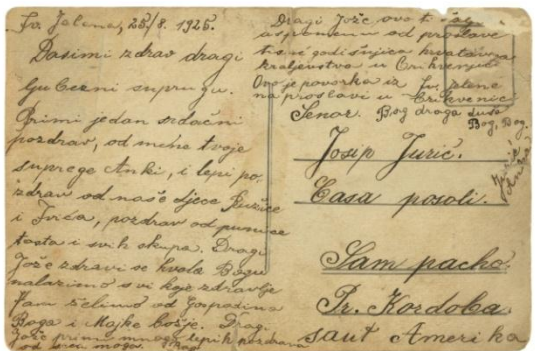 Sv. Jelena, 25/8. 1925.
Dasimi zdrav dragi
ljubezni suprugu.
Primi jedan srdačni
pozdrav, od mene tvoje
suprege Anki, i lepi po-
zdrav od naše djece Ružice
i Ivića, pozdrav od punice
tasta i svih skupa. Dragi
Jože zdravi se hvala Bogu
nalazimo svi koje zdravlje
Vam želimo od Gospodina
Boga i Majke božje. Dragi
Jože primi mnogo lepih pozdrava
od
Dragi Jože ovo ti
uspomenu od proslave
godišnjica hrvatskva
kraljevstva u Crikvenici
Ovo je povorka iz Sv. Jelene
na proslavi u Crikvenici
Bog draga duša
Bog, Bog.
Jurić
Anka
Senor.
Josip Jurić.
Casa posoli.
Sam pacho
Pr. Kordoba
saut Amerika